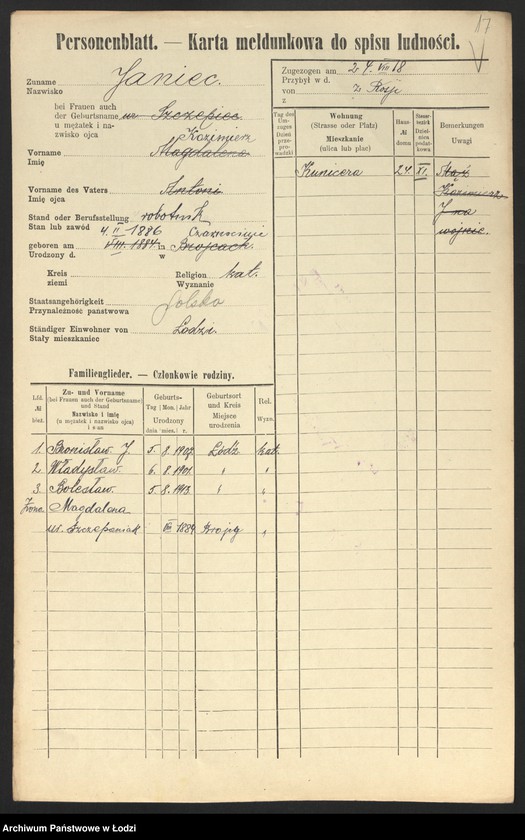 17
Personenblatt. — Karta meldunkowa do spisu ludności.
Zuname
Nazwisko
Janiec.
bei Frauen auch
der Geburtsname ur. Szczepiec.
u mężatek i na-
zwisko ojca
Kazimierz
Vorname Magdalena
Imię
Vorname des Vaters Antoni
Imię ojca
Stand oder Berufsstellung robotnik
Stan lub zawód
4. II 1886
geboren am VIII. 1884 in
Urodzony d. w
Kreis
ziemi
Religion kat.
Wyznanie
Staatsangehörigkeit Polska
Przynależność państwowa
Ständiger Einwohner von Łodzi
Stały mieszkaniec
Zugezogen am 24. VIII 18
Przybył w d.
von z Rosji
z
Tag des Um-zuges Dzień prze-prowadzki
Wohnung
(Strasse oder Platz)
Mieszkanie
(ulica lub plac)
Haus-
№
domu
Bemerkungen
Uwagi
Kunicera 24. XI.
Mąż
Kazimierz
J na
wojnie.
Familienglieder. — Członkowie rodziny.
Lfd.
№
bież.
Zu- und Vorname
(bei Frauen auch der Geburtsname)
und Stand
Nazwisko i imię
(u mężatek i nazwisko ojca)
i stan
Geburts-
Tag | Mon. | Jahr
Urodzony
dnia | mies. | r.
Geburtsort
und Kreis
Miejsce
urodzenia
Rel.
Wyzn.
1. Bronisław J. 5. 8. Łódź kat.
2 Władysław. 6. 8. 1901. " "
3 Bolesław. 5. 8. 1913. " "
Żona Magdalena
ur. Szczepaniak VIII 1884 "
Archiwum Państwowe w Łodzi